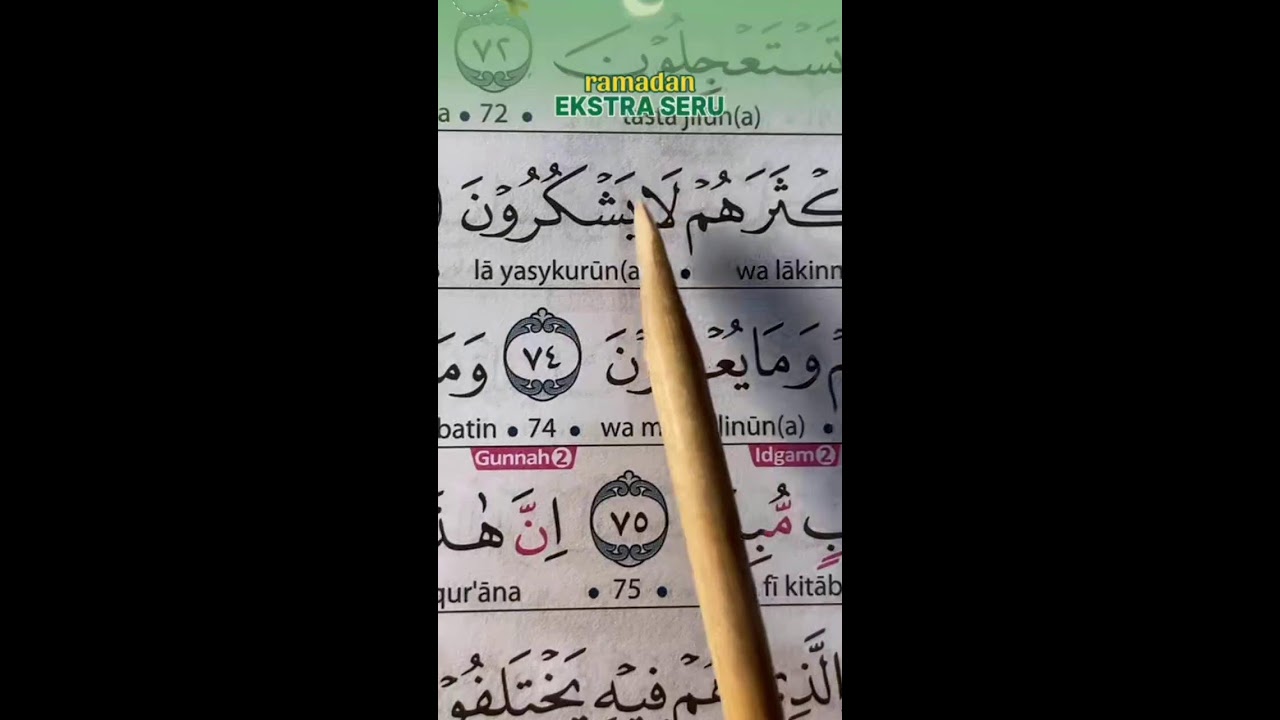 تَسْتَعْجِلُوْنَ ٧٢
ramadan
EKSTRA SERU
72 •
كْثَرَهُمْ لَا يَشْكُرُوْنَ
lā yasykurūn(a • wa lākinn
وَمَا يُعْ نَ ٧٤ وَمَ
batin • 74 • wa m linūn(a) •
Gunnah 2 Idgam 2
٧٥ اِنَّ هٰذَ
qur'āna • 75 • fī kitāb
الَّذِيْ هُمْ فِيْهِ يَخْتَلِفُوْ